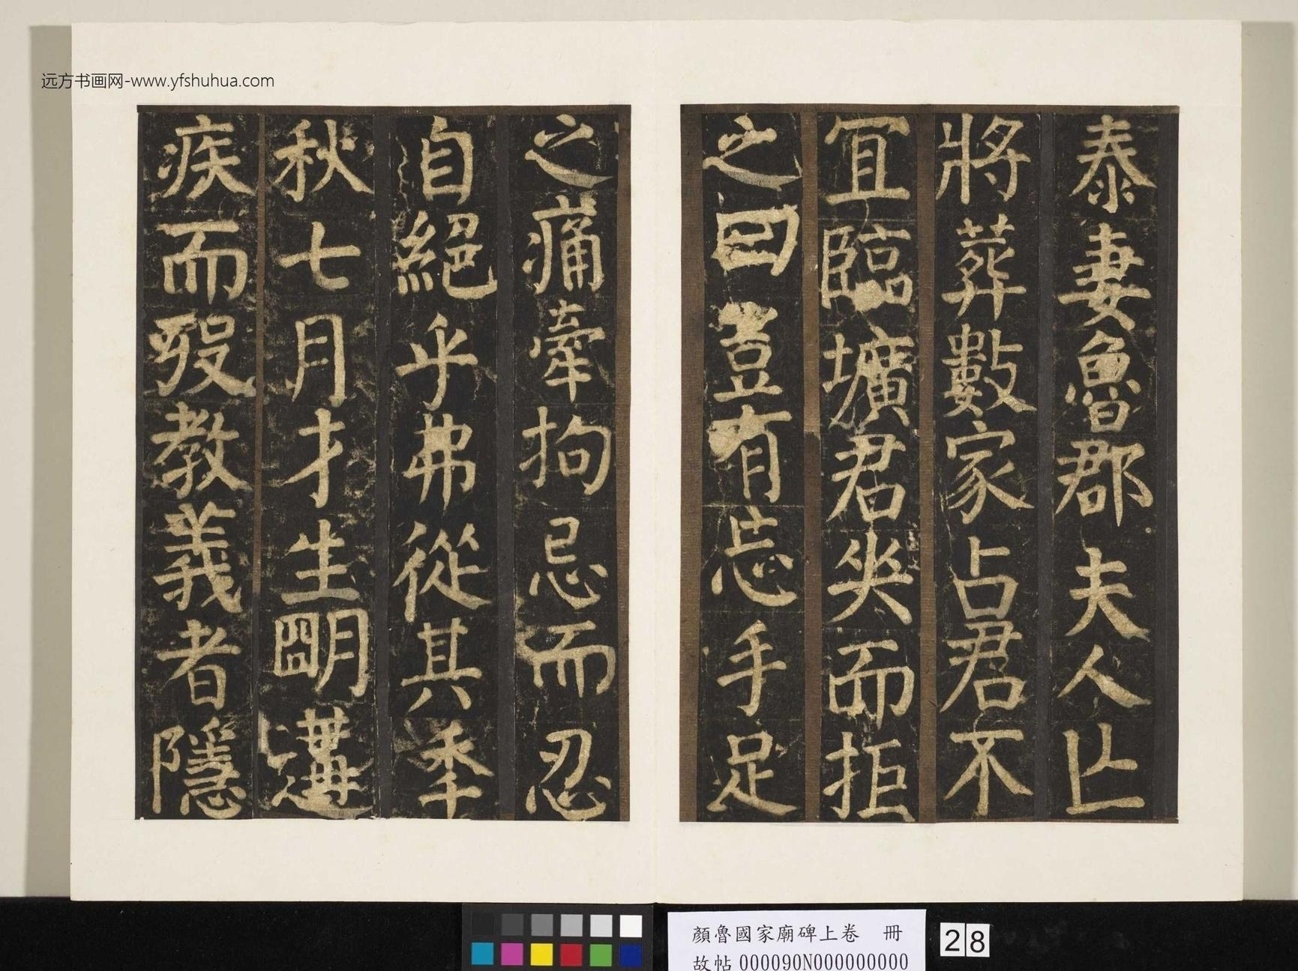 远方书画网-www.yfshuhua.com
泰妻魯郡夫人亡
將葬數家占君不
宜臨壙君哭而拒
之曰豈有忘手足
之痛牽拘忌而忍
自絕乎弗從其年
秋七月才生明遘
疾而歿教義者隱
顏魯國家廟碑上卷 冊
故帖000090N000000000
28